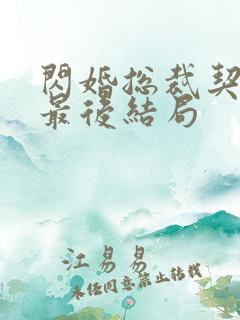 閃婚总裁契
最後結局
江易易
未经同意禁止转载